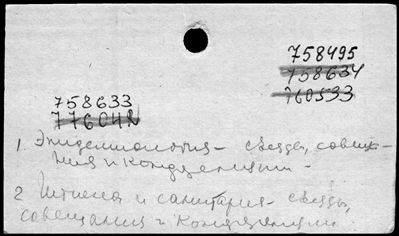 758495
758634
760533
758633
776042
1. Эпидемиология - съезды, совеща-
ния и конференции -
2 Гигиена и санитария - съезды,
совещания и конференции.